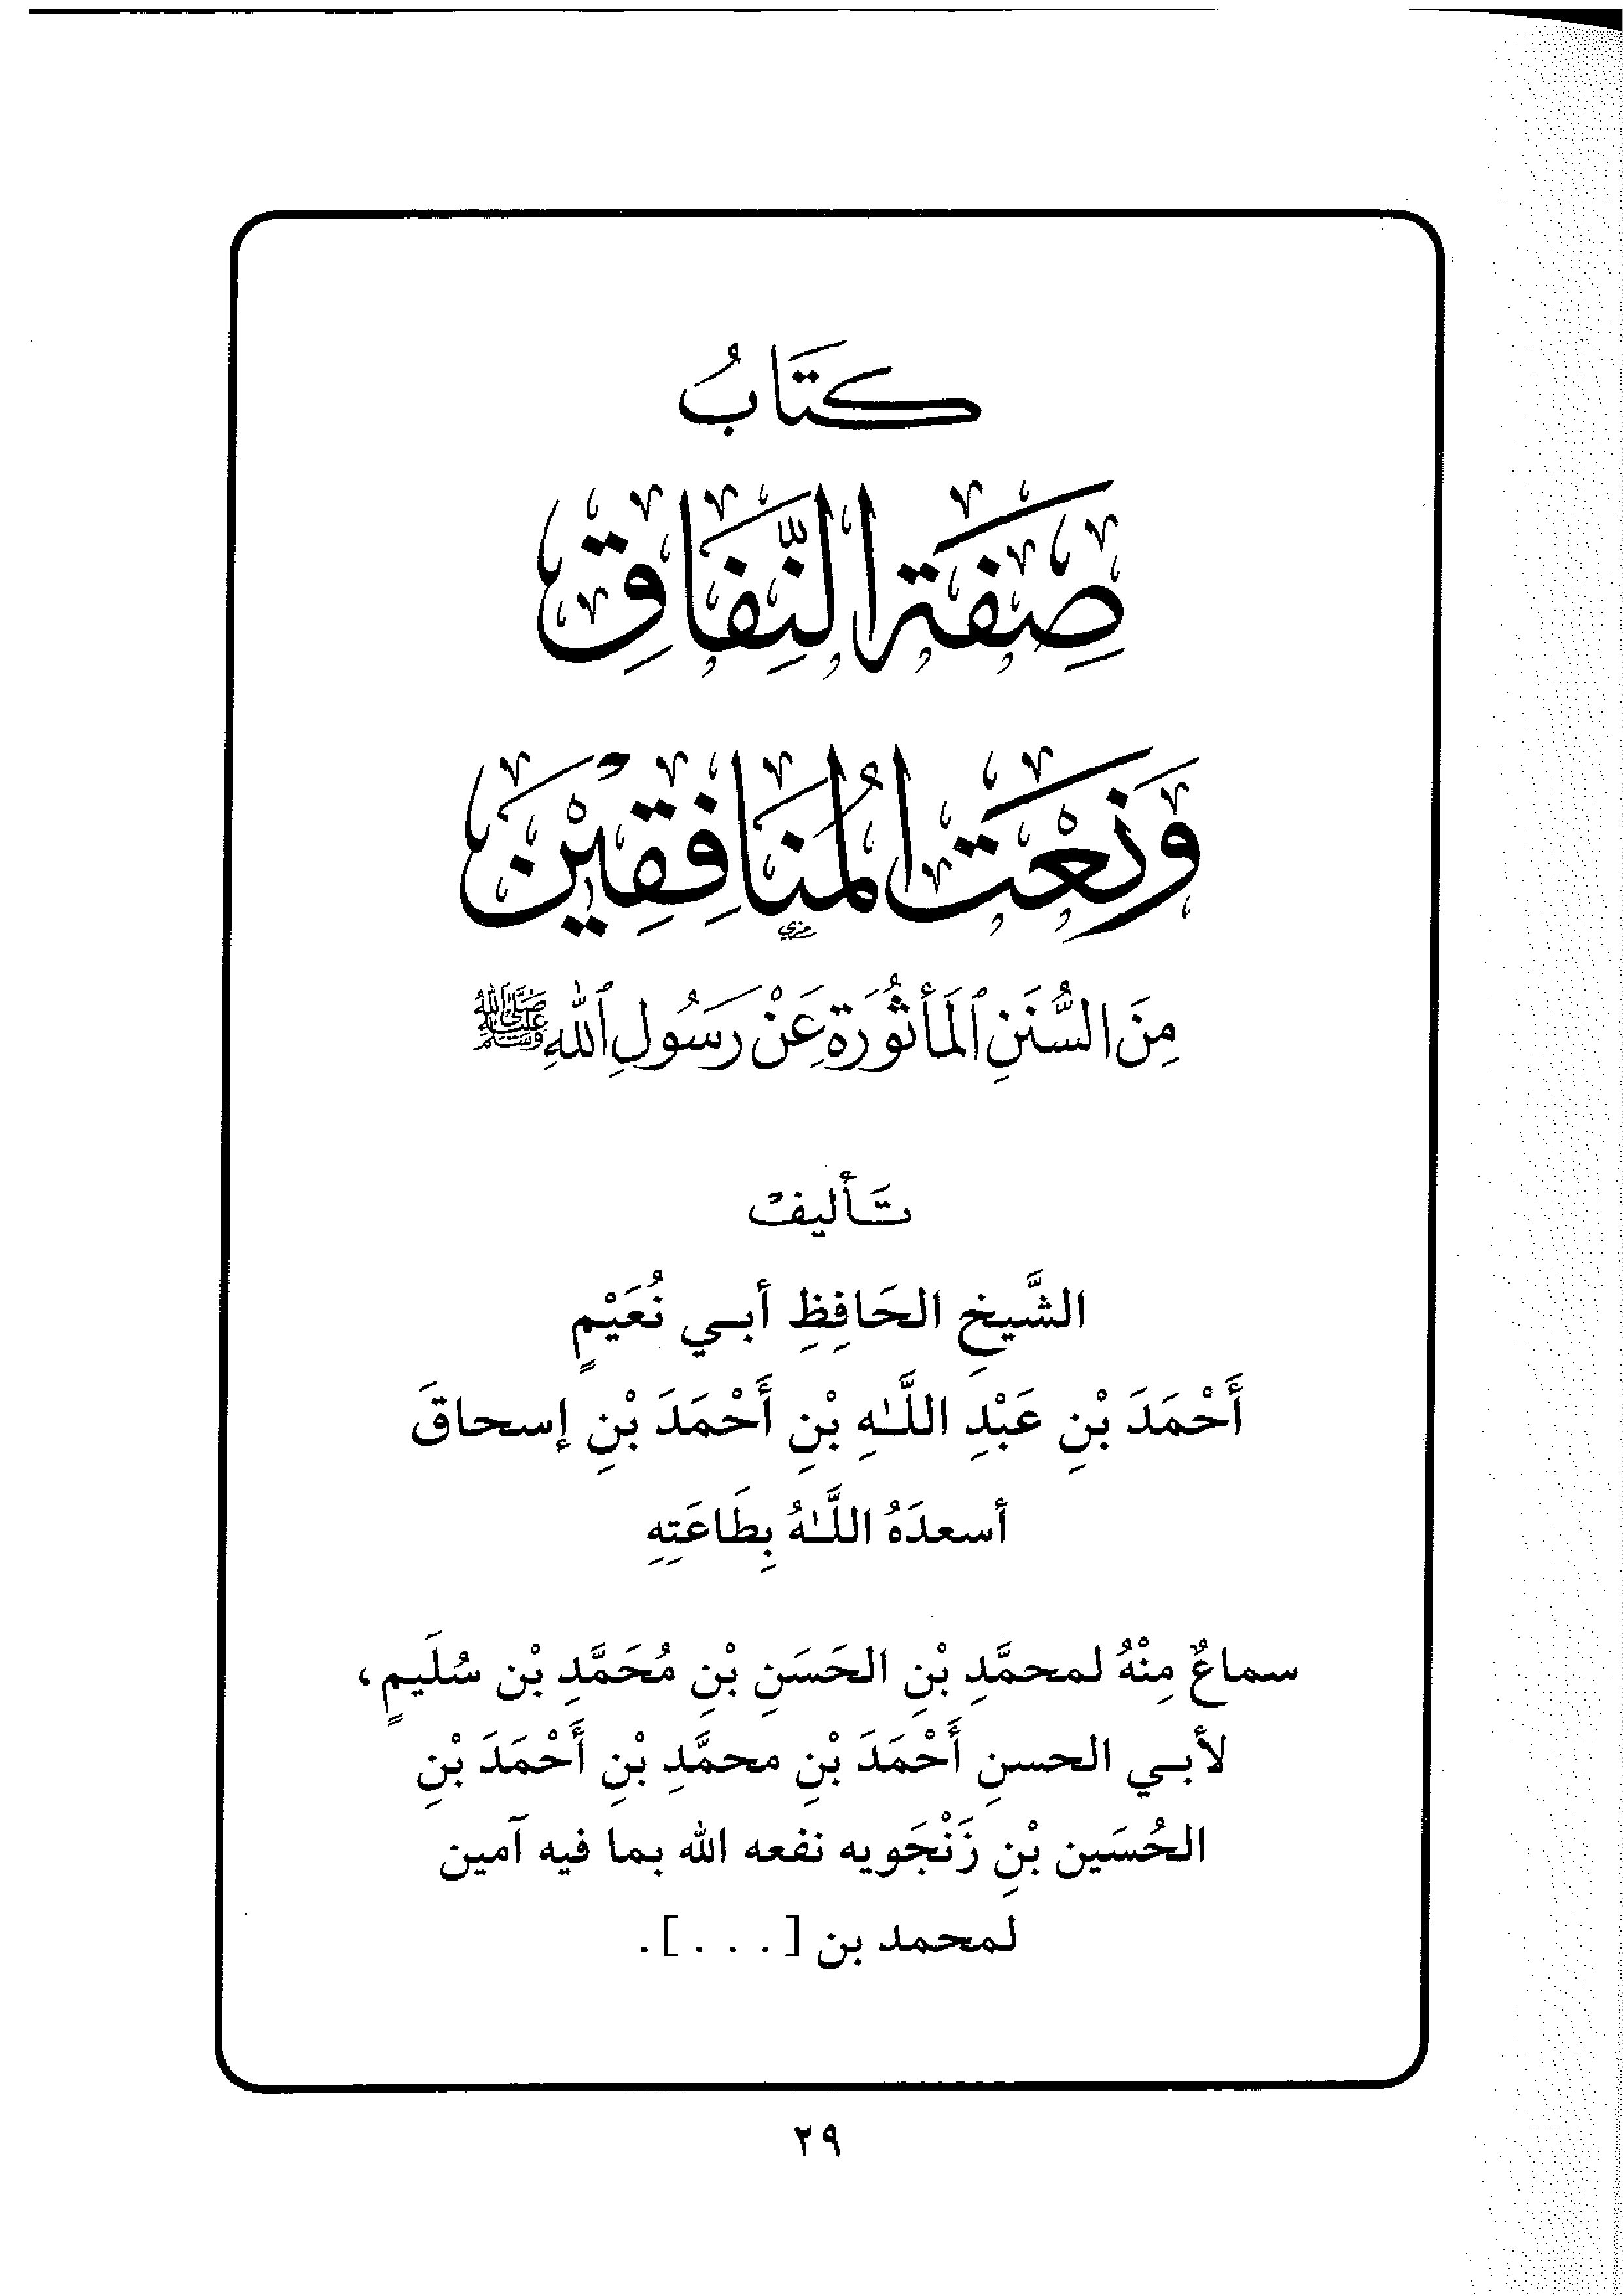 كتَابُ
صِفَة النِّفَاقِ
وَنَعْت المُنَافِقِيْنَ
مِنَ السُّنَنِ ٱلمَأثُورَةِ عَنْ رَسُولِ ٱللهِ ﷺ
تَأليفْ
الشَّيخِ الحَافِظِ أبي نُعَيْمٍ
أَحْمَدَ بْنِ عَبْدِ اللَّـٰهِ بْنِ أَحْمَدَ بْنِ إسحاقَ
أسعدَهُ اللَّـٰهُ بِطَاعَتِهِ
سماعٌ مِنْهُ لمحمَّدِ بْنِ الحَسَنِ بْنِ مُحَمَّدِ بْن سُلَيمٍ،
لأبي الحسنِ أَحْمَدَ بْنِ محمَّدِ بْنِ أَحْمَدَ بْنِ
الحُسَين بْنِ زَنْجَويه نفعه الله بما فيه آمين
لمحمد بن [...].
٢٩